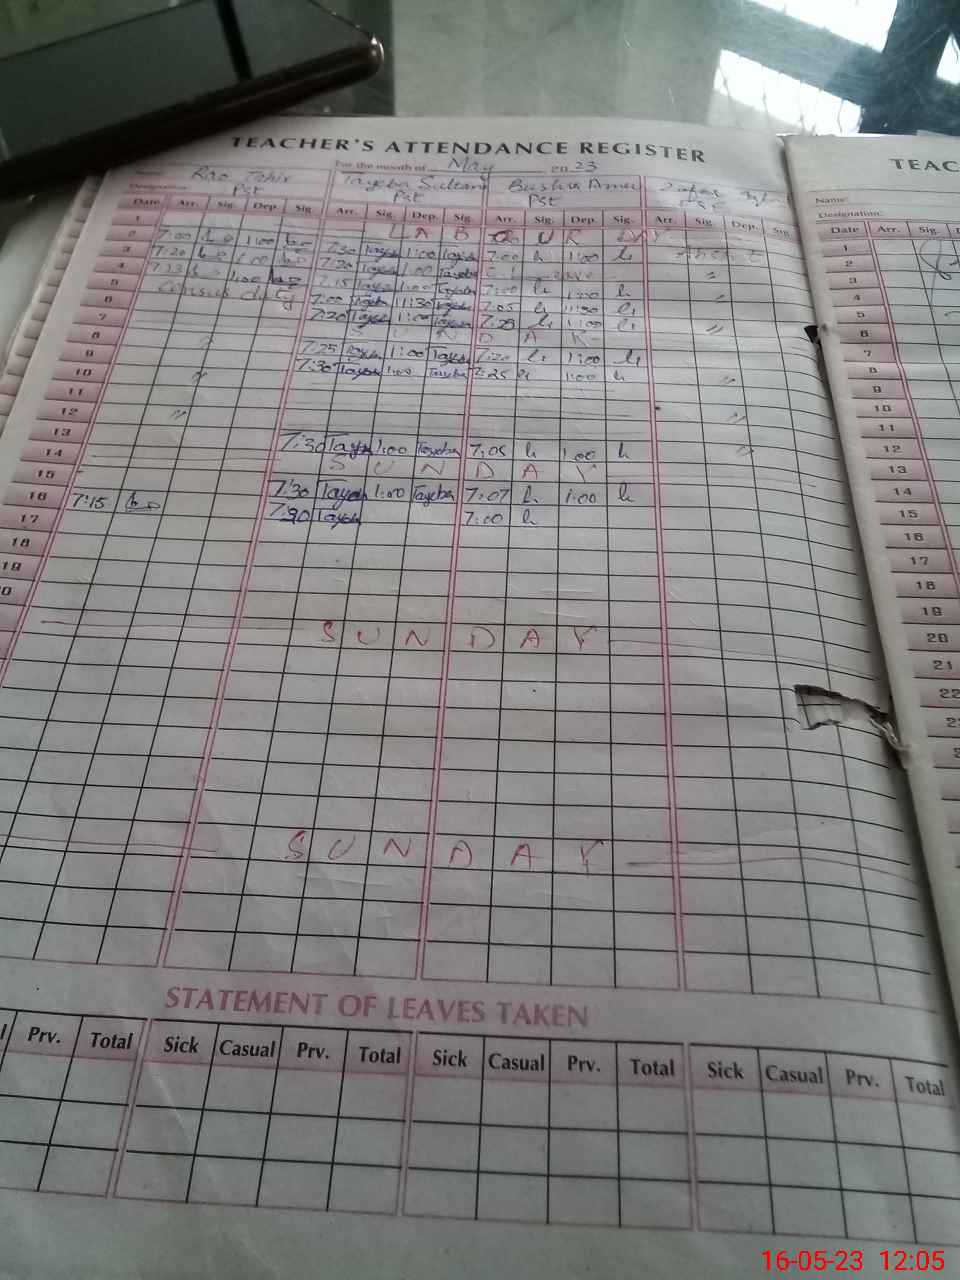 TEACHER'S ATTENDANCE REGISTER
For the month of May 2023
Rao Tahir Tayeba Sultana Bushra
Designation Pst Pst Pst
Date Arr. Sig. Dep. Sig. Arr. Sig. Dep. Sig. Arr. Sig. Dep. Sig. Arr. Sig. Dep. Sig.
1 LABOUR DAY
2 7:00 1:00 7:30 Tayeba 1:00 Tayeba 7:00 1:00 Absent
3 7:20 1:00 7:20 Tayeba 1:00 Tayeba "
4 7:23 1:00 7:15 Tayeba 1:00 Tayeba 7:00 1:00
5 Census duty 7:00 Tayeba 11:30 Tayeba 7:05 11:30 "
6 7:20 Tayeba 1:00 Tayeba 7:25 1:00 "
7 SUNDAY
8 " 7:25 Tayeba 1:00 Tayeba 7:20 1:00
9 7:30 Tayeba 1:00 Tayeba 7:25 1:00 "
10 "
11
12 " "
13 7:30 Tayeba 1:00 Tayeba 7:05 1:00 "
14 SUNDAY
15 7:30 Tayeba 1:00 Tayeba 7:07 1:00
16 7:15 7:30 Tayeba 7:00
17
18
19
SUNDAY
SUNDAY
STATEMENT OF LEAVES TAKEN
Prv. Total Sick Casual Prv. Total Sick Casual Prv. Total Sick Casual Prv. Total
TEAC
Name:
Designation:
Date Arr. Sig.
1
2
3
4
5
6
7
8
9
10
11
12
13
14
15
16
17
18
19
20
21
22
16-05-23 12:05